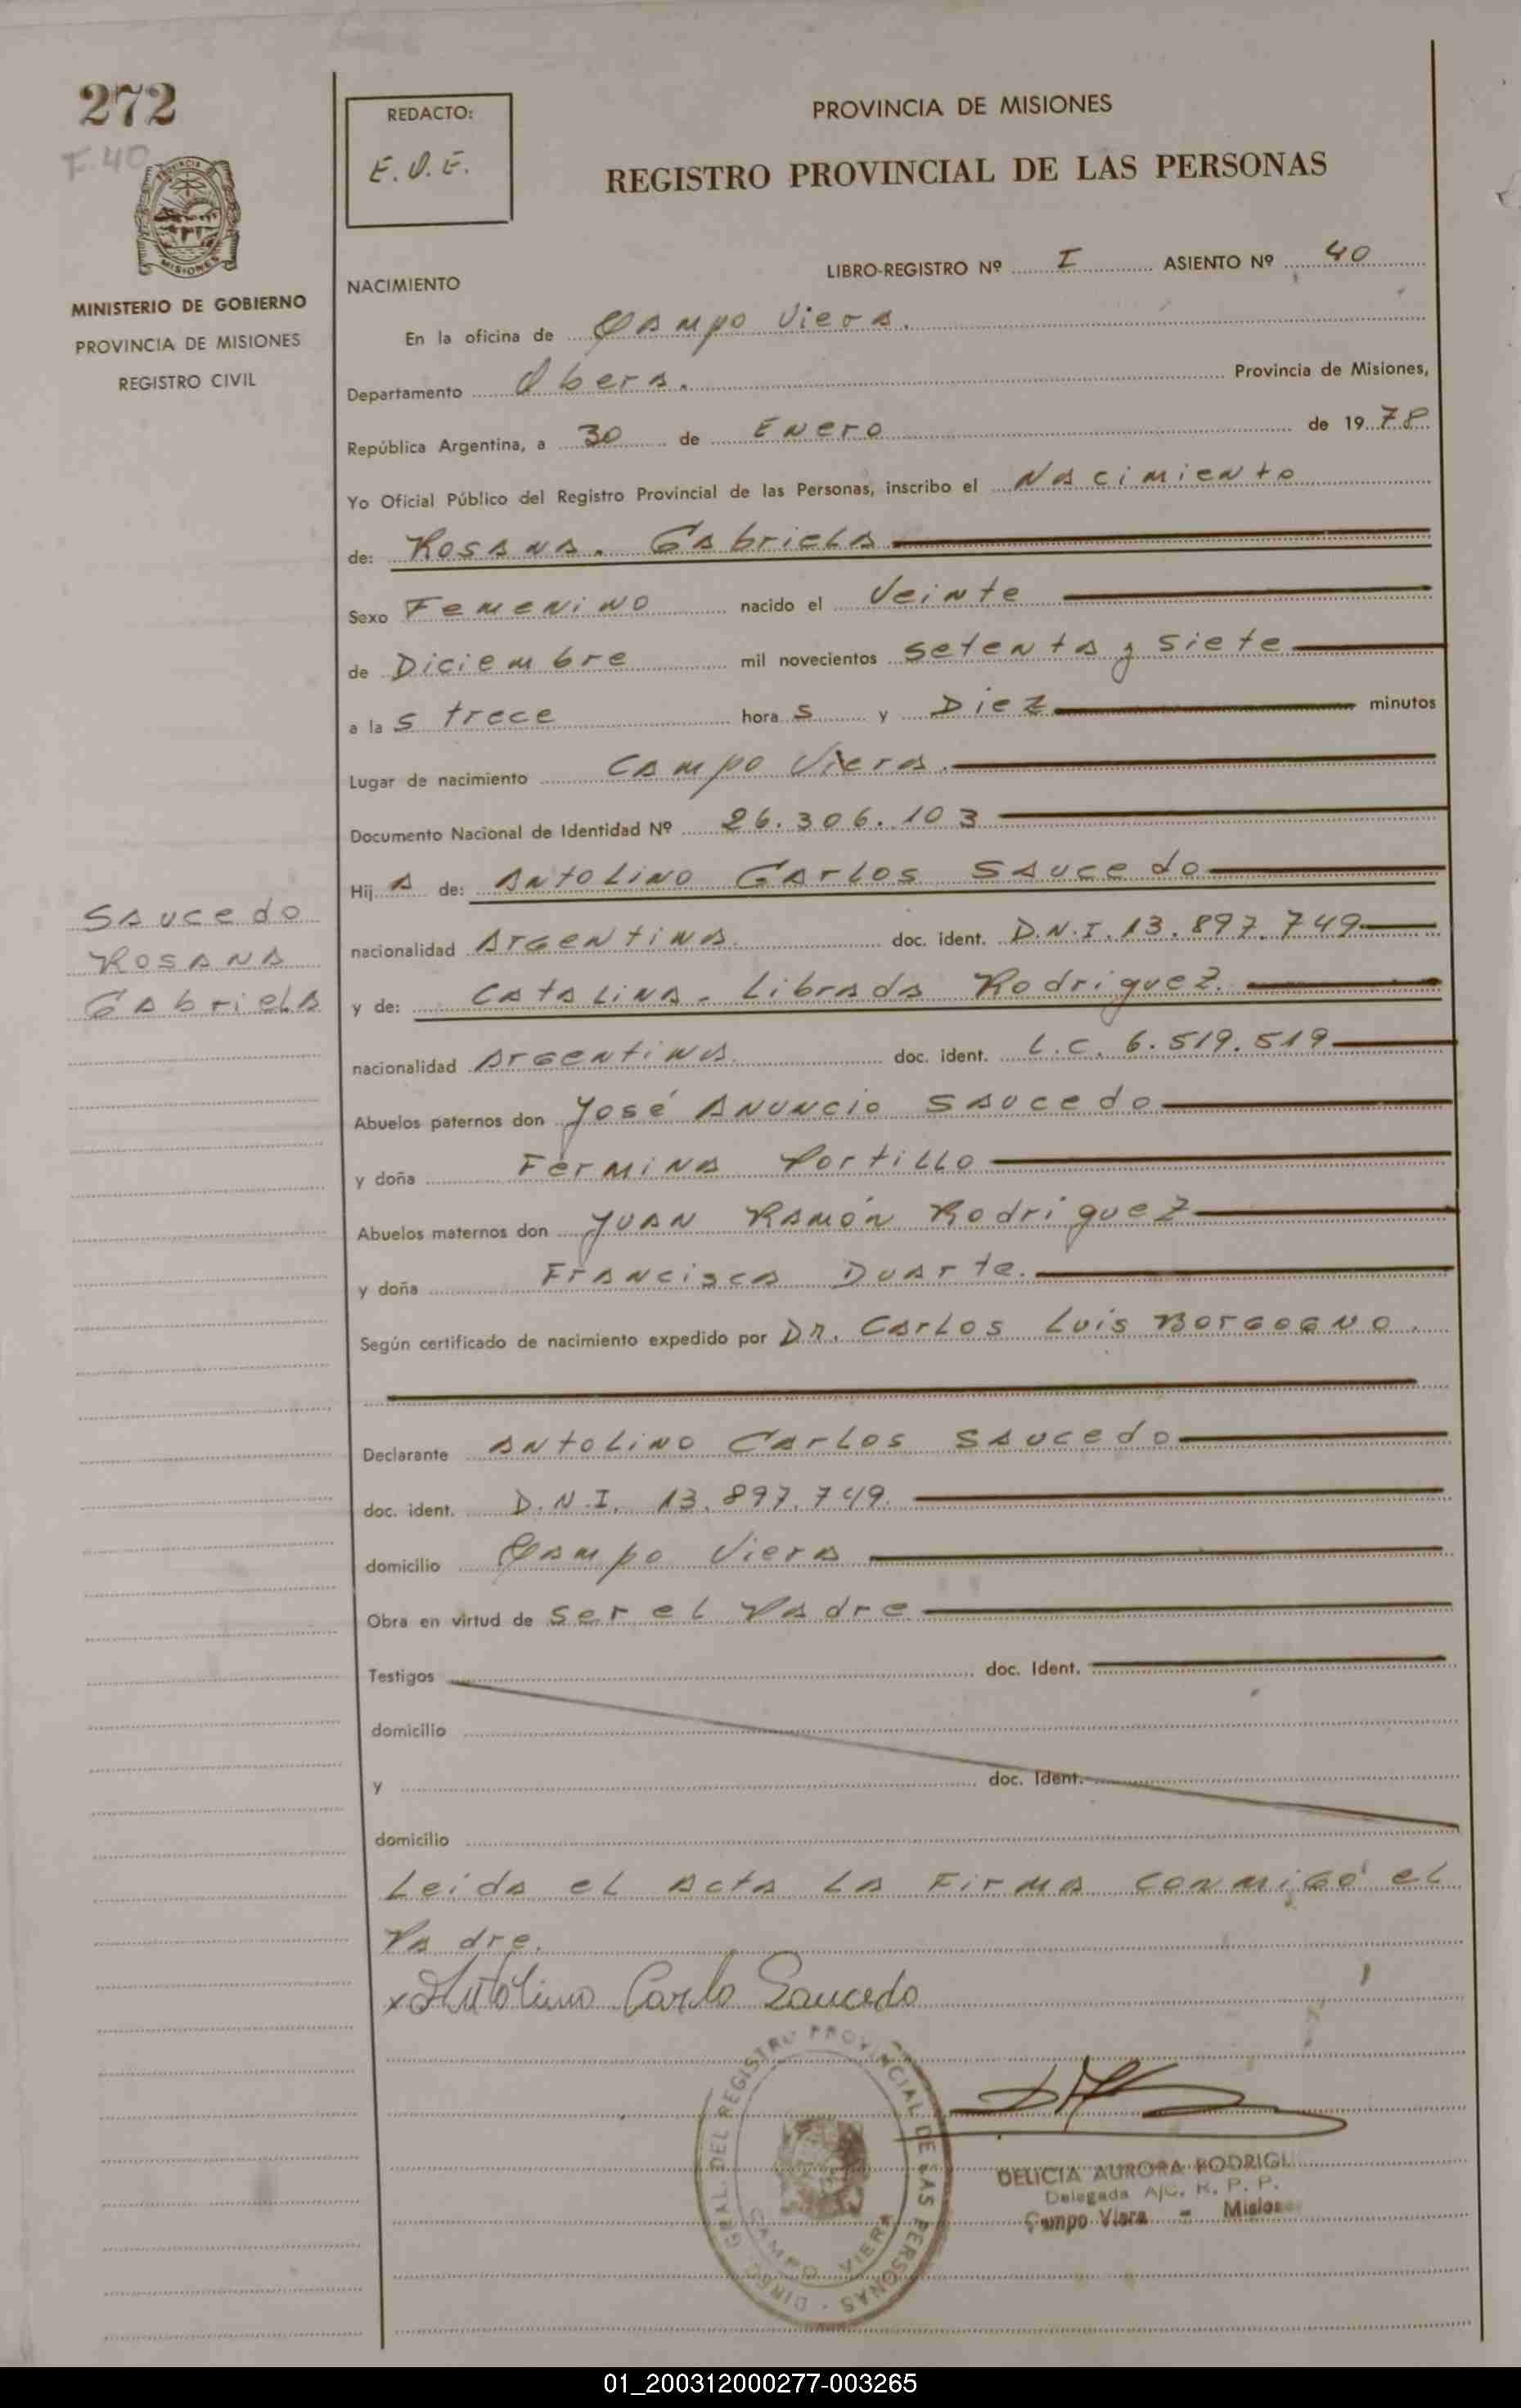 272
F. 40
PROVINCIA
MISIONES
MINISTERIO DE GOBIERNO
PROVINCIA DE MISIONES
REGISTRO CIVIL
REDACTO:
E.O.E.
PROVINCIA DE MISIONES
REGISTRO PROVINCIAL DE LAS PERSONAS
LIBRO-REGISTRO Nº I ASIENTO Nº 40
NACIMIENTO
En la oficina de Campo Viera.
Departamento Obera. Provincia de Misiones,
República Argentina, a 30 de Enero de 1978
Yo Oficial Público del Registro Provincial de las Personas, inscribo el Nacimiento
de: Rosana. Gabriela
Sexo Femenino nacido el Veinte
de Diciembre mil novecientos setenta y siete
a las trece horas y Diez minutos
Lugar de nacimiento Campo Viera.
Documento Nacional de Identidad Nº 26.306.103
Hija de: Antolino Carlos Saucedo
Saucedo
Rosana
Gabriela
nacionalidad Argentina. doc. ident. D.N.I. 13.897.749
y de: Catalina. Librada Rodriguez.
nacionalidad Argentina. doc. ident. L.C. 6.519.519
Abuelos paternos don José Anuncio Saucedo
y doña Fermina Portillo
Abuelos maternos don Juan Ramón Rodriguez
y doña Francisca Duarte.
Según certificado de nacimiento expedido por Dr. Carlos Luis Borgogno.
Declarante Antolino Carlos Saucedo
doc. ident. D.N.I. 13.897.749.
domicilio Campo Viera
Obra en virtud de ser el Padre
Testigos doc. Ident.
domicilio
y doc. Ident.
domicilio
Leida el acta la Firma conmigo el
Padre.
x Antolino Carlo Saucedo
DIREC. GRAL. DEL REGISTRO PROVINCIAL DE LAS PERSONAS
CAMPO VIERA
DELICIA AURORA RODRIGU
Delegada A/C. R. P. P.
Campo Viera - Mision
01_200312000277-003265